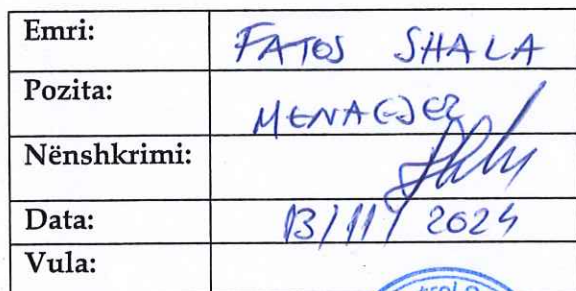 Emri: FATOS SHALA
Pozita: MENAGJER
Nënshkrimi:
Data: 13/11/2024
Vula: